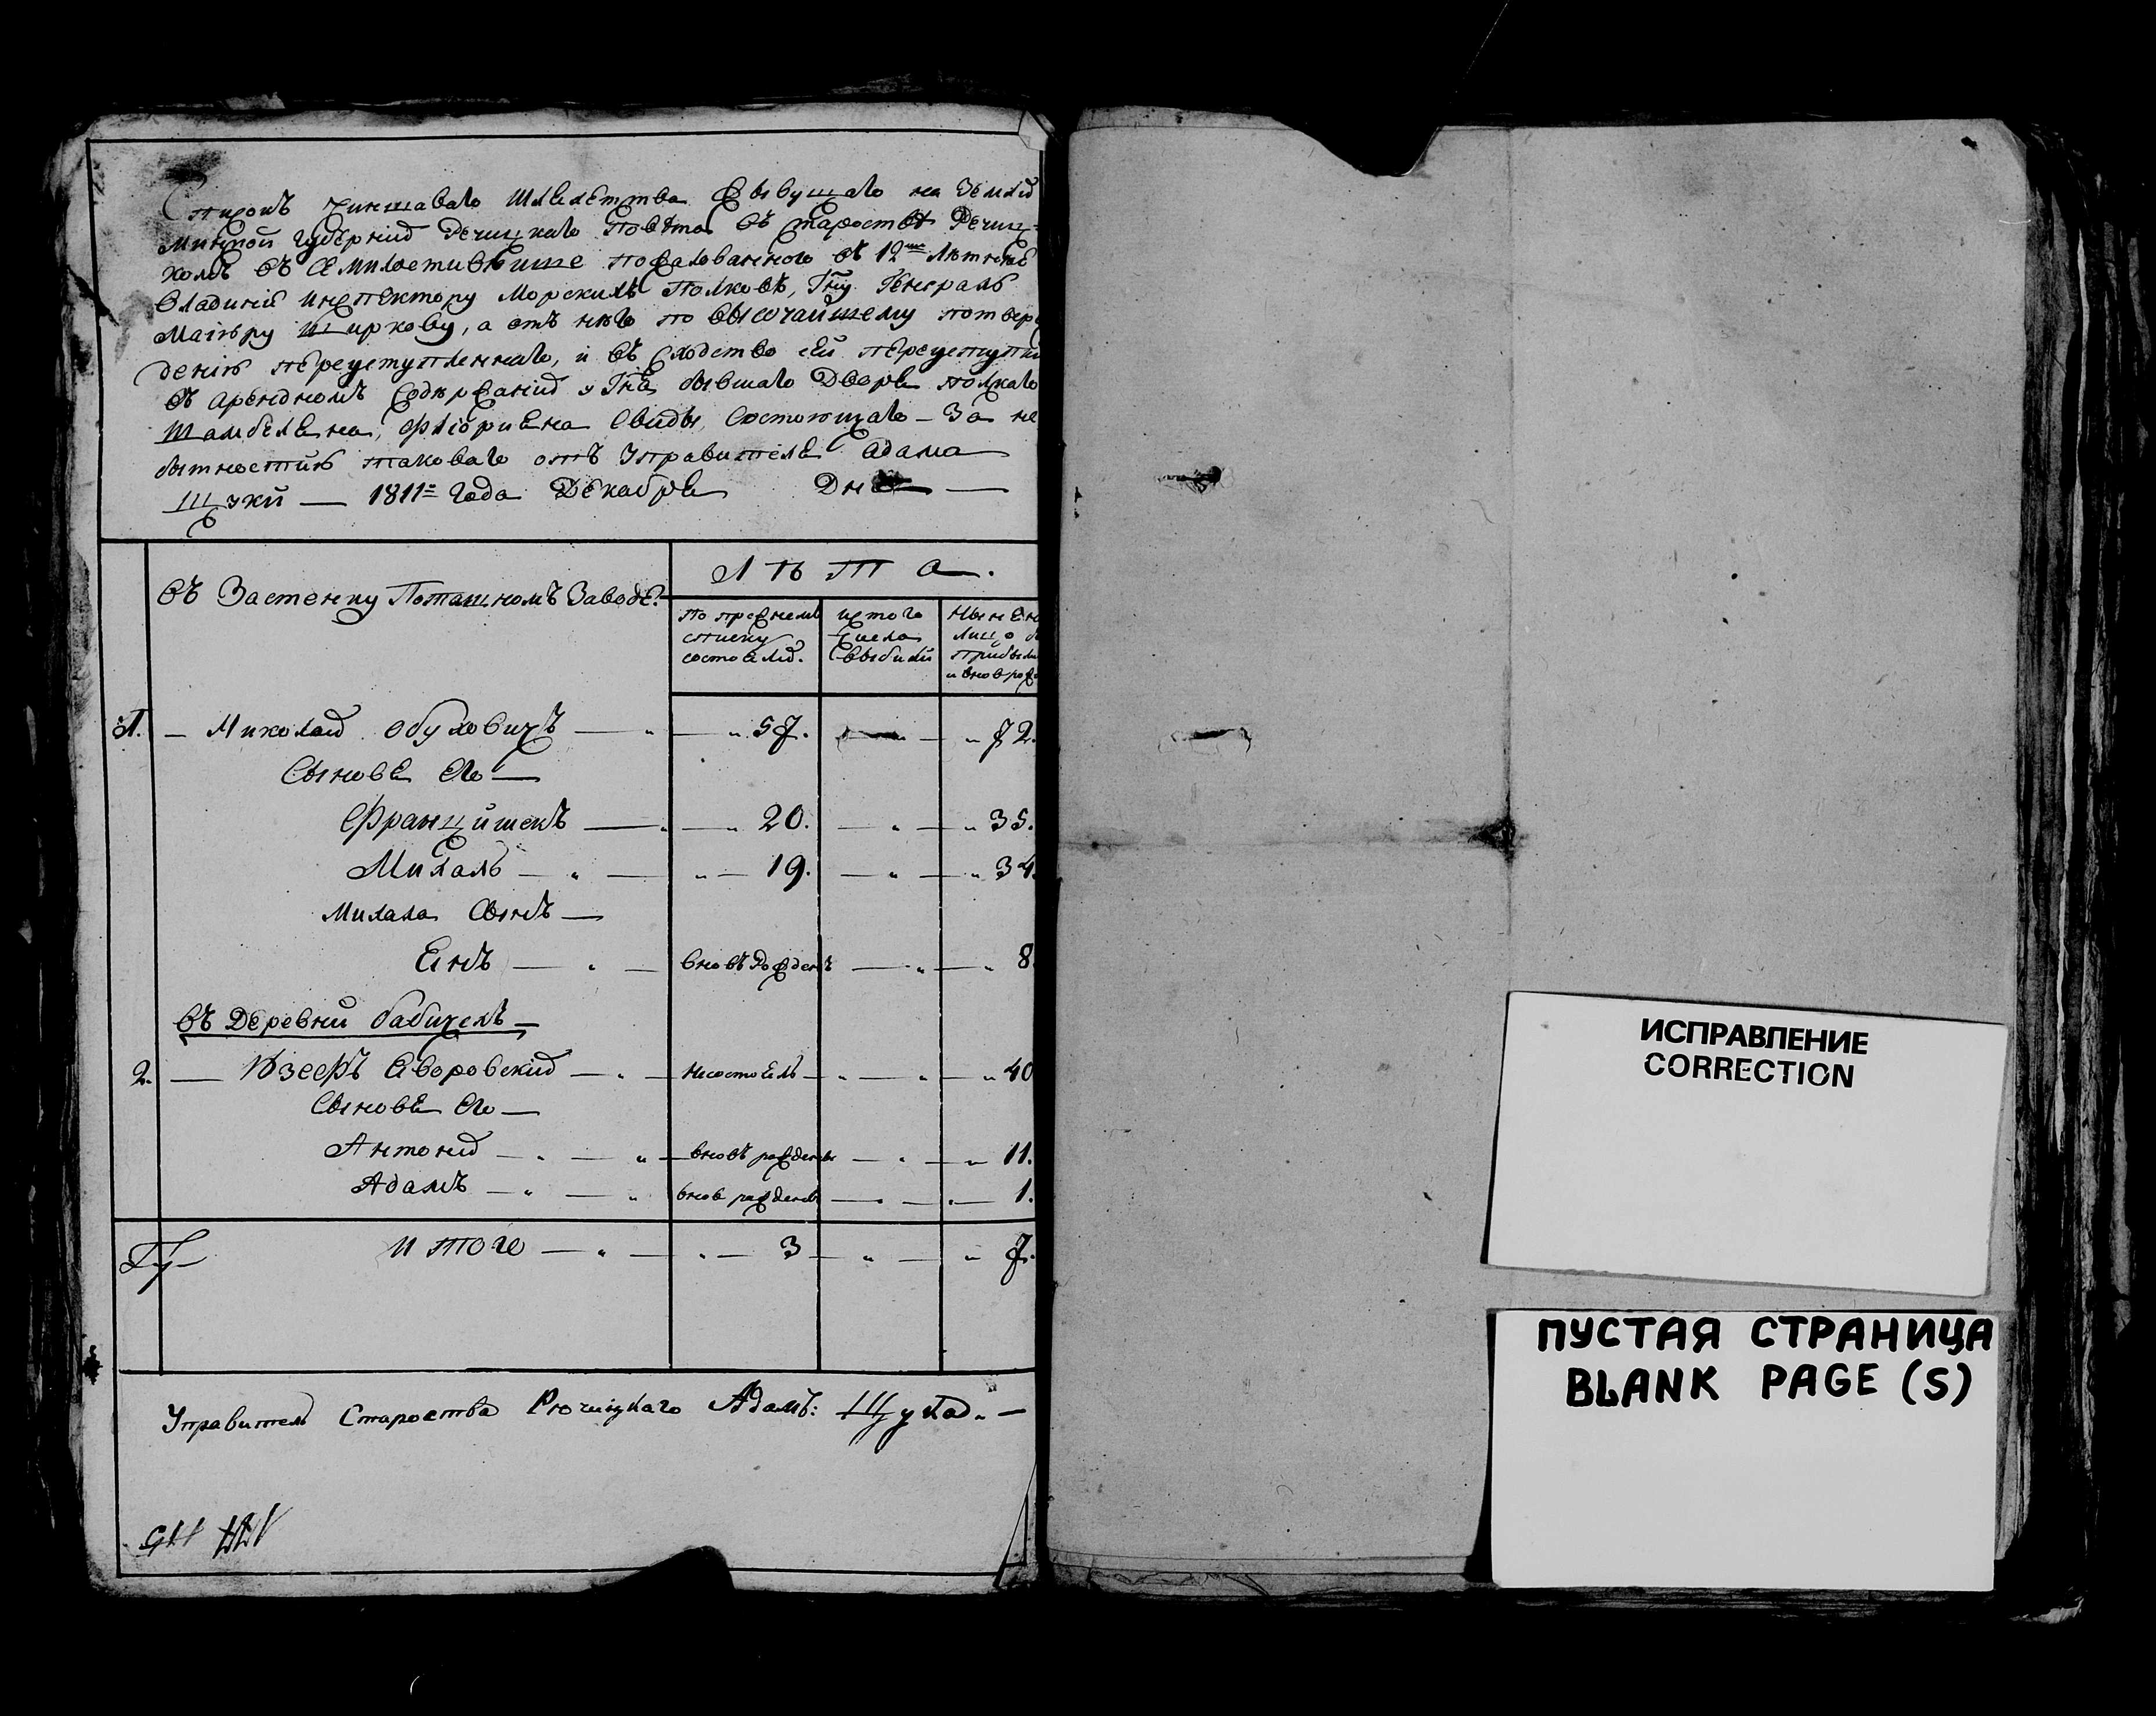 Списокъ чиншаваго Шляхетства живущаго на Земли
Минской Губерніи Речицкаго Повѣта въ Старостве Речиц-
комъ въ Семилостивѣише пожалованного въ 12 Лѣтнее
Владиніе инспектору Морскихъ Полковъ, Гну Генералъ
Маіору Ширкову, а отъ него по высочайшему потвер
денію переуступленнаго, и въ Слѣдство сей переуступки
въ арендномъ Содержаніи у Гна бывшаго Двора полскаго
Шамбеляна, Флоріяна Свиды, Состоящаго — За не
бытностію таковаго отъ Управителя Адама
Щуки — 1811 Года Декабря Дня —
Въ Застенку Поташномъ Заводѣ
Лѣта.
по прежнему списку состояли.
истого Числа выбили
Ныне на лицо прибыли и вновь рож
1. — Миколай Обуховичъ — 57. — 72.
Сыновя Его —
Францишекъ — 20. — 35.
Михалъ — 19. — 34.
Михала Сынъ —
Янъ — вновъ Рожденъ — 8
Въ Деревни Бабичехъ —
2. — Юзефъ Яворовский — Несостоялъ — 40
Сыновя Его —
Антоній — вновъ рожденъ — 11.
Адамъ — внов рожденъ — 1.
Итого — 3 — 7.
Управитель Староства Речицкаго Адамъ: Щука. —
ИСПРАВЛЕНИЕ
CORRECTION
ПУСТАЯ СТРАНИЦА
BLANK PAGE (S)